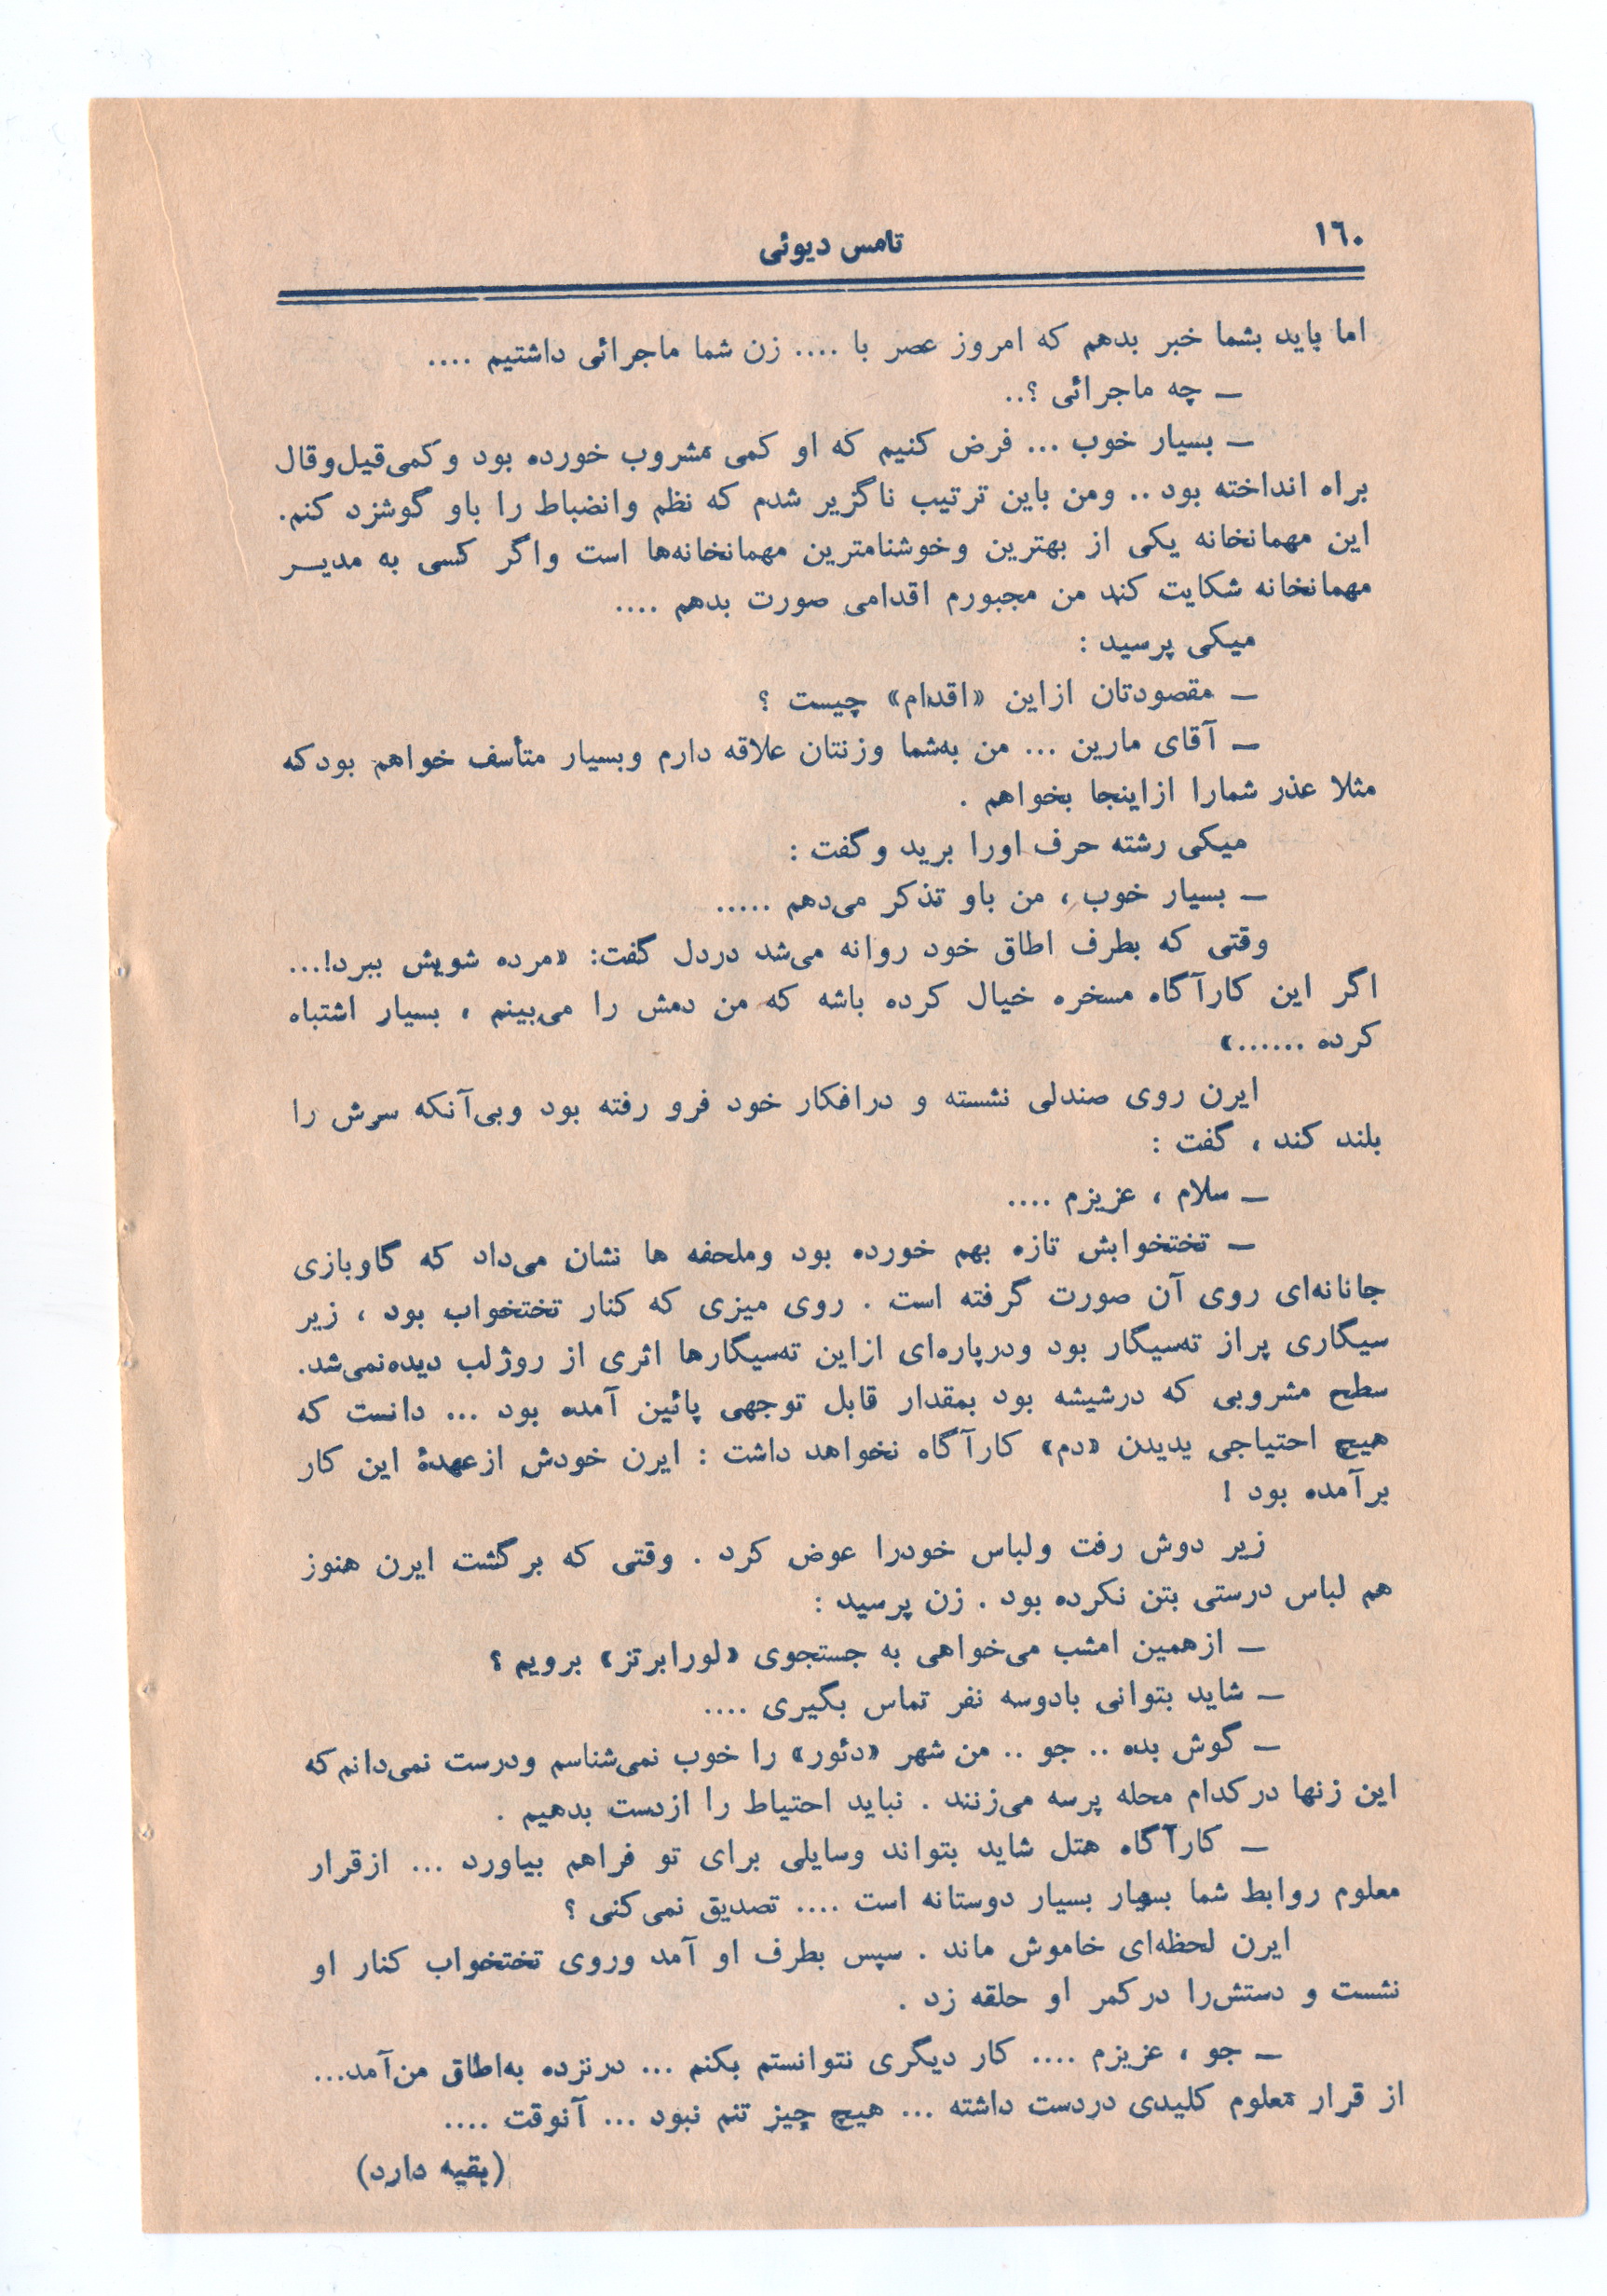 ١٦٠
تامس دیوئی
اما پاید بشما خبر بدهم که امروز عصر با .... زن شما ماجرائی داشتیم ....
ـ چه ماجرائی ؟..
ـ بسیار خوب ... فرض کنیم که او کمی مشروب خورده بود و کمی‌قیل‌وقال
براه انداخته بود .. ومن باین ترتیب ناگزیر شدم که نظم وانضباط را باو گوشزد کنم.
این مهمانخانه یکی از بهترین وخوشنامترین مهمانخانه‌ها است واگر کسی به مدیـــر
مهمانخانه شکایت کند من مجبورم اقدامی صورت بدهم ....
میکی پرسید :
ـ مقصودتان ازاین «اقدام» چیست ؟
ـ آقای مارین ... من به‌شما وزنتان علاقه دارم وبسیار متأسف خواهم بودکه
مثلا عذر شمارا ازاینجا بخواهم .
میکی رشته حرف اورا برید وگفت :
ـ بسیار خوب ، من باو تذکر می‌دهم .....
وقتی که بطرف اطاق خود روانه می‌شد دردل گفت: «مرده شویش ببرد!...
اگر این کارآگاه مسخره خیال کرده باشه که من دمش را می‌بینم ، بسیار اشتباه
کرده ......»
ایرن روی صندلی نشسته و درافکار خود فرو رفته بود وبی‌آنکه سرش را
بلند کند ، گفت :
ـ سلام ، عزیزم ....
ـ تختخوابش تازه بهم خورده بود وملحفه ها نشان می‌داد که گاوبازی
جانانه‌ای روی آن صورت گرفته است . روی میزی که کنار تختخواب بود ، زیر
سیگاری پراز ته‌سیگار بود ودرپاره‌ای ازاین ته‌سیگارها اثری از روژلب دیده‌نمی‌شد.
سطح مشروبی که درشیشه بود بمقدار قابل توجهی پائین آمده بود ... دانست که
هیچ احتیاجی یدیدن «دم» کارآگاه نخواهد داشت : ایرن خودش ازعهدهٔ این کار
برآمده بود !
زیر دوش رفت ولباس خودرا عوض کرد . وقتی که برگشت ایرن هنوز
هم لباس درستی بتن نکرده بود . زن پرسید :
ـ ازهمین امشب می‌خواهی به جستجوی «لورابرتز» برویم ؟
ـ شاید بتوانی بادوسه نفر تماس بگیری ....
ـ گوش بده .. جو .. من شهر «دئور» را خوب نمی‌شناسم ودرست نمی‌دانم‌که
این زنها درکدام محله پرسه می‌زنند . نباید احتیاط را ازدست بدهیم .
ـ کارآگاه هتل شاید بتواند وسایلی برای تو فراهم بیاورد ... ازقرار
معلوم روابط شما بسیار بسیار دوستانه است .... تصدیق نمی‌کنی ؟
ایرن لحظه‌ای خاموش ماند . سپس بطرف او آمد وروی تختخواب کنار او
نشست و دستش‌را درکمر او حلقه زد .
ـ جو ، عزیزم .... کار دیگری نتوانستم بکنم ... درنزده به‌اطاق من‌آمد...
از قرار معلوم کلیدی دردست داشته ... هیچ چیز تنم نبود ... آنوقت ....
(بقیه دارد)